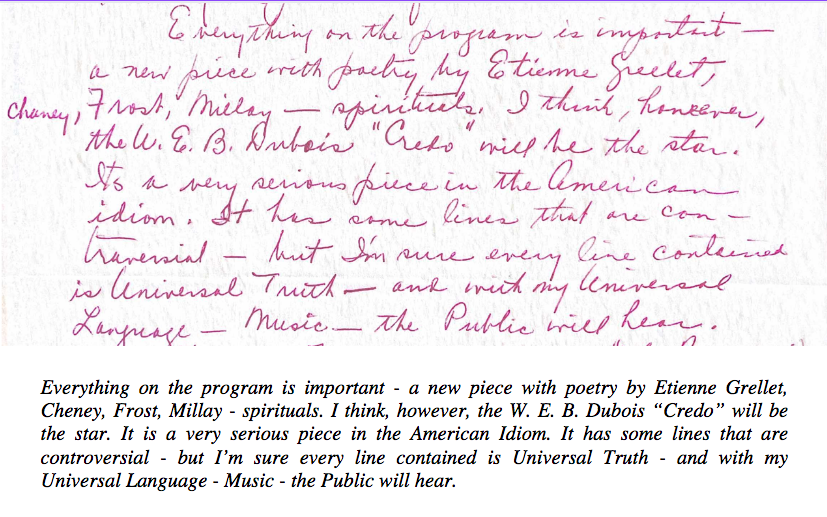 Everything on the program is important —
a new piece with poetry by Etienne Grellet,
Chaney, Frost, Millay — spirituals. I think, however,
the W. E. B. Dubois "Credo" will be the star.
Its a very serious piece in the American
idiom. It has some lines that are con –
traversial — but I'm sure every line contained
is Universal Truth — and with my Universal
Language — Music — the Public will hear.
Everything on the program is important - a new piece with poetry by Etienne Grellet,
Cheney, Frost, Millay - spirituals. I think, however, the W. E. B. Dubois “Credo” will be
the star. It is a very serious piece in the American Idiom. It has some lines that are
controversial - but I’m sure every line contained is Universal Truth - and with my
Universal Language - Music - the Public will hear.